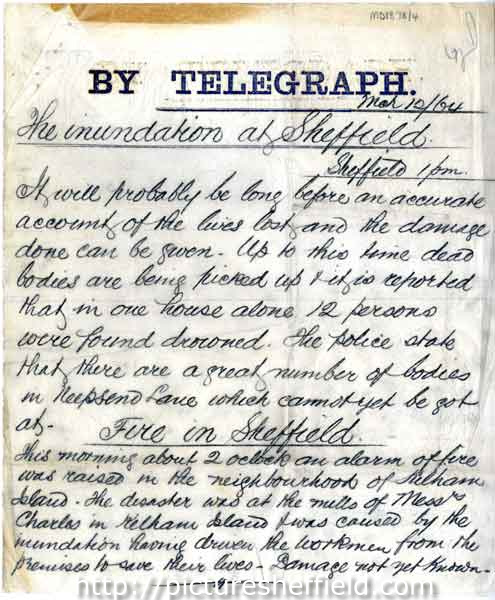 MD1878/4
BY TELEGRAPH.
Mch 12/64
The inundation at Sheffield.
Sheffield 1 pm.
It will probably be long before an accurate
account of the lives lost and the damage
done can be given. Up to this time dead
bodies are being picked up & it is reported
that in one house alone 12 persons
were found drowned. The police state
that there are a great number of bodies
in Neepsend Lane which cannot yet be got
at.
Fire in Sheffield.
This morning about 2 oclock an alarm of fire
was raised in the neighbourhood of Kelham
Island. The disaster was at the mills of Messrs
Charles in Kelham Island & was caused by the
inundation having driven the workmen from the
premises to save their lives - Damage not yet known.
http://picturesheffield.com